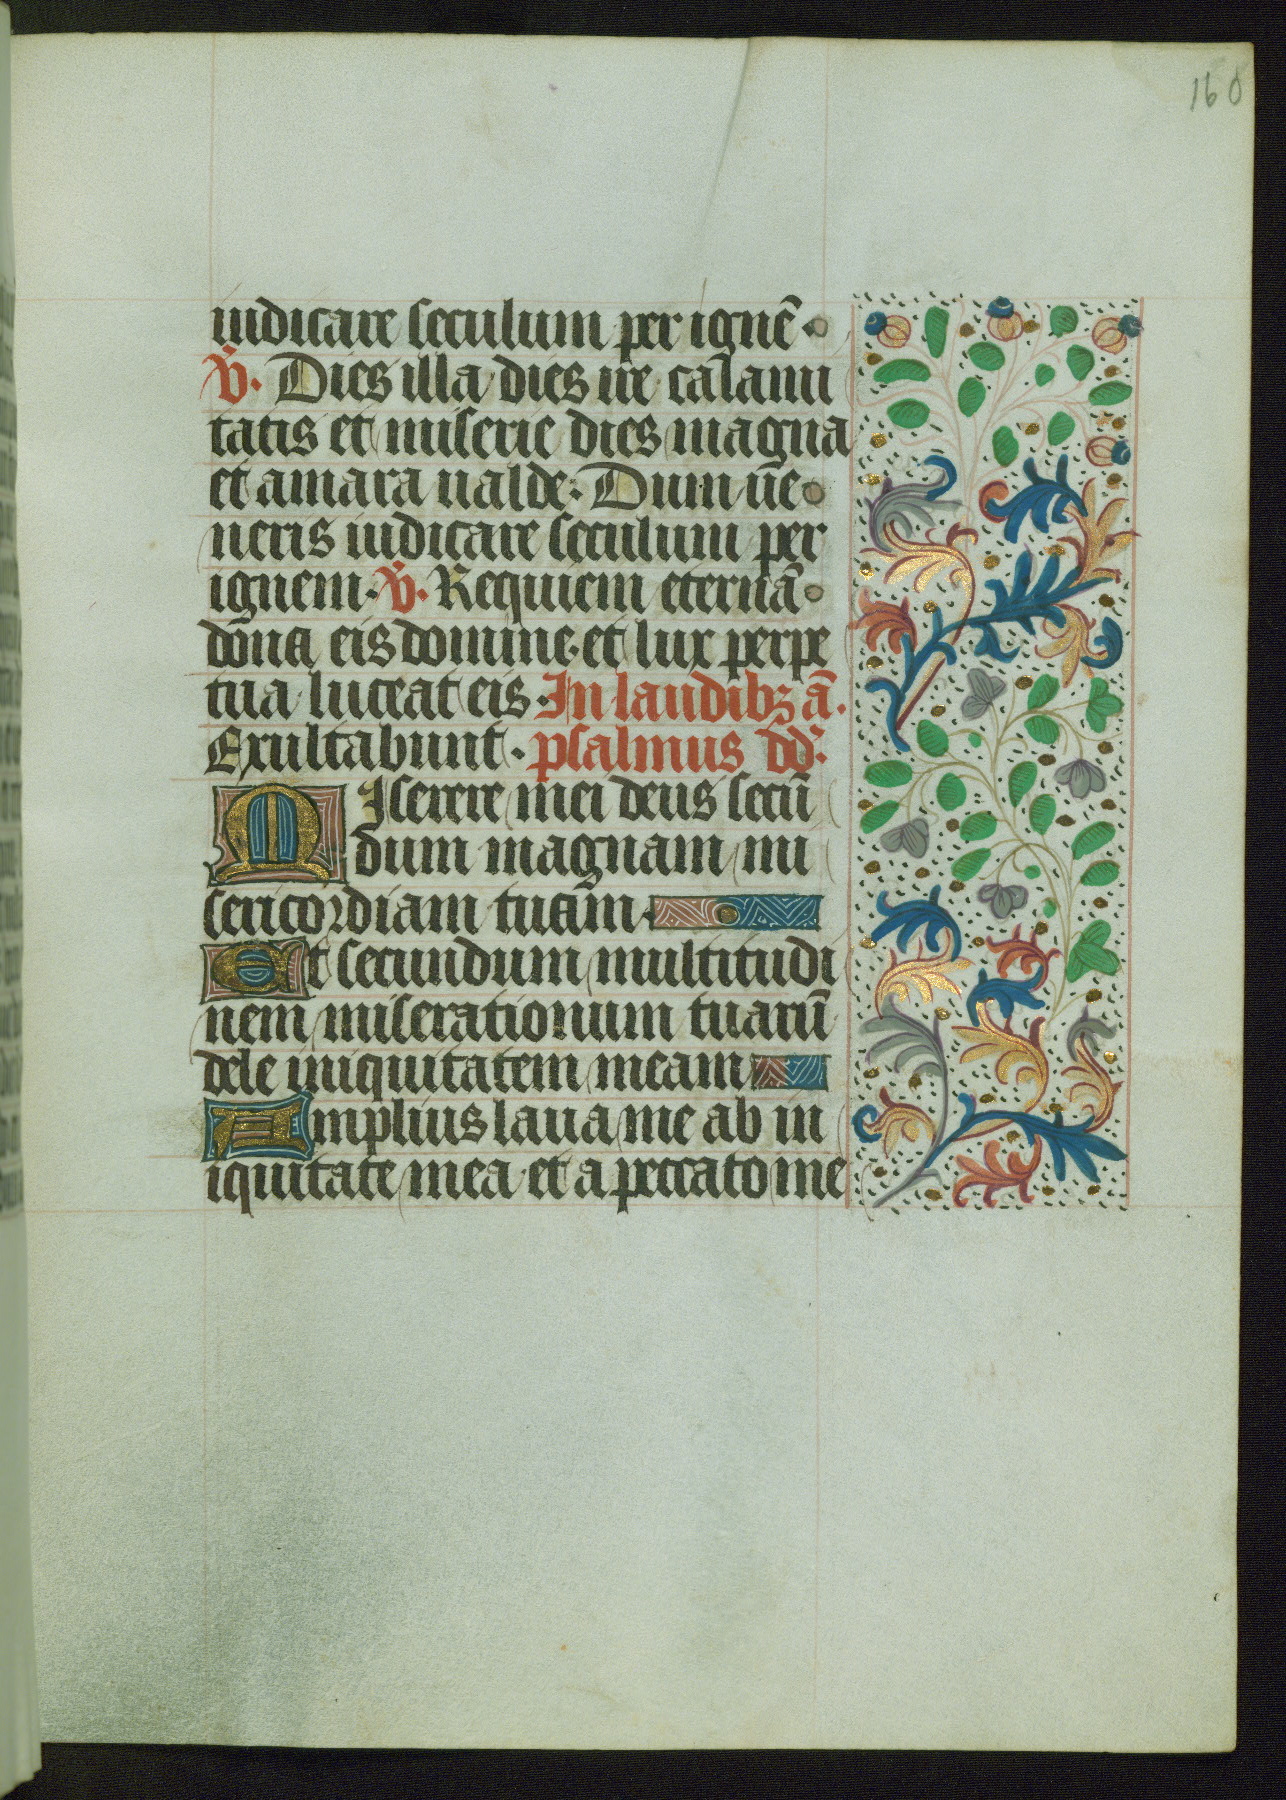 160
iudicare seculum per ignē.
V̄. Dies illa dies ire calami
tatis et miserie dies magna
et amara ualde. Dum ue
neris iudicare seculum per
ignem. V̄. Requiem eternā
dona eis domine. et lux perpe
tua luceat eis. In laudibꝫ ā.
Exultabunt. psalmus dd.
Miserere mei deus secū
dum magnam mi
sericordiam tuam.
Et secundum multitudi
nem miserationum tuarū
dele iniquitatem meam
Amplius laua me ab in
iquitate mea. et a peccato me